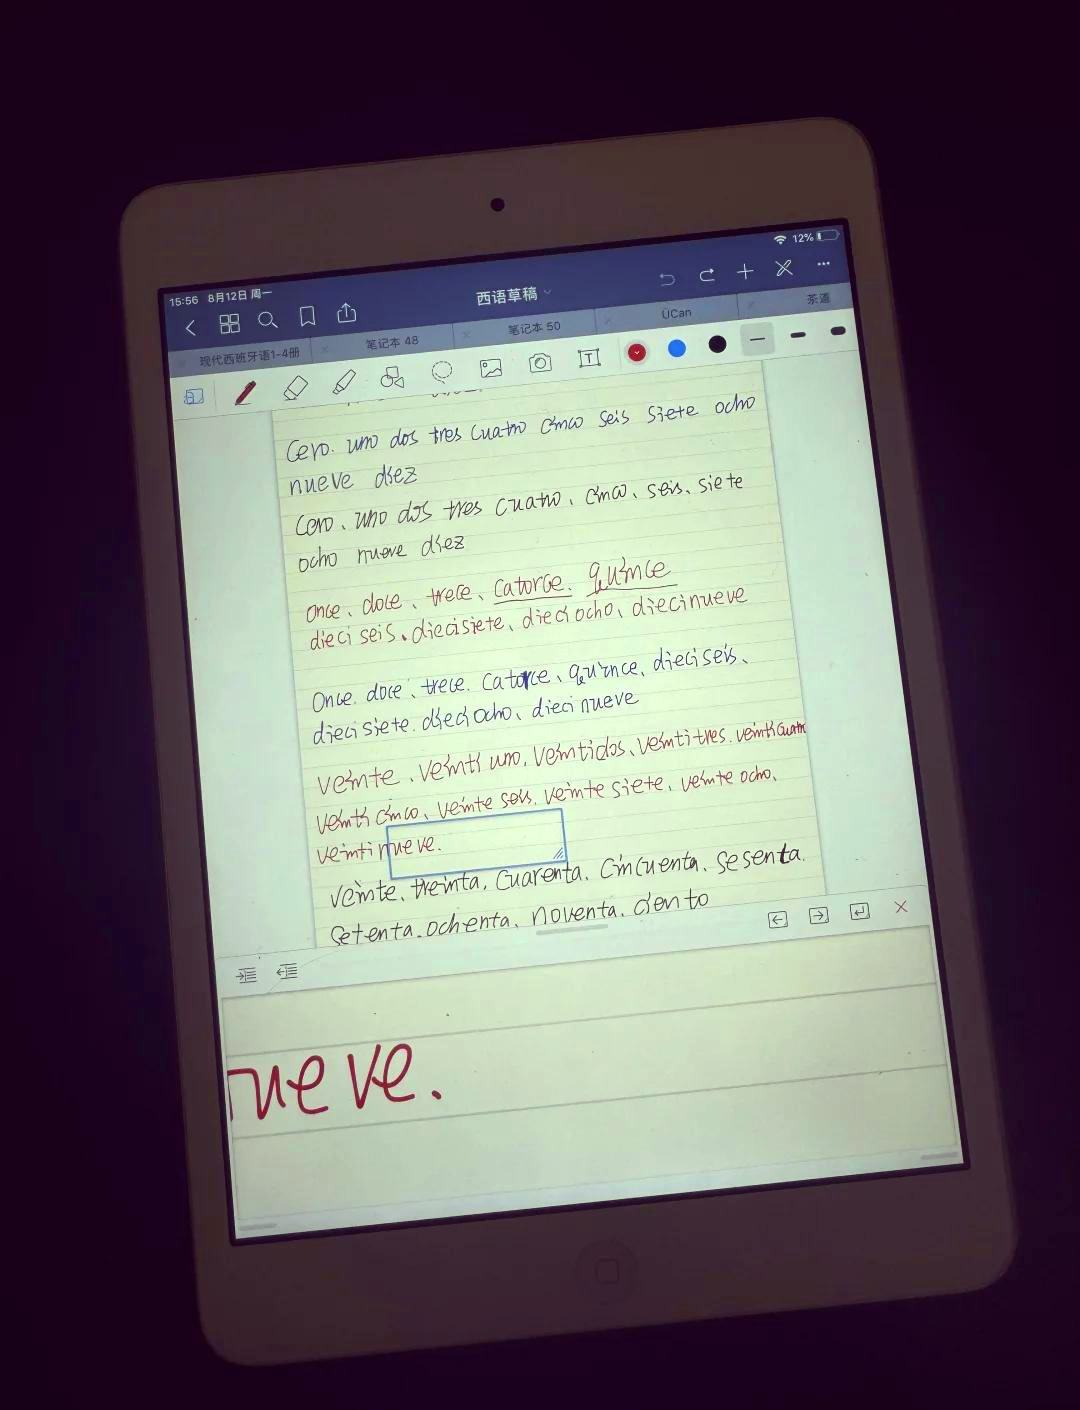 15:56 8月12日 周一
12%
西语草稿
现代西班牙语1-4册
笔记本 48
笔记本 50
ÜCan
茶道
Cero. uno dos tres cuatro cinco seis siete ocho
nueve diez
Cero、uno dos tres cuatro、cinco、seis、siete
ocho nueve diez
once、doce、trece、catorce. quince
dieci seis、diecisiete、dieciocho、diecinueve
Once. doce、trece. catorce、quince、dieciseis、
diecisiete. dieciocho、diecinueve
veinte、veinti uno. veintidos、veintitres. veinticuatro
veinti cinco、veinte seis. veinte siete、veinte ocho、
veintinueve.
veinte、treinta. cuarenta. cincuenta. sesenta.
setenta. ochenta、noventa. ciento
nueve.